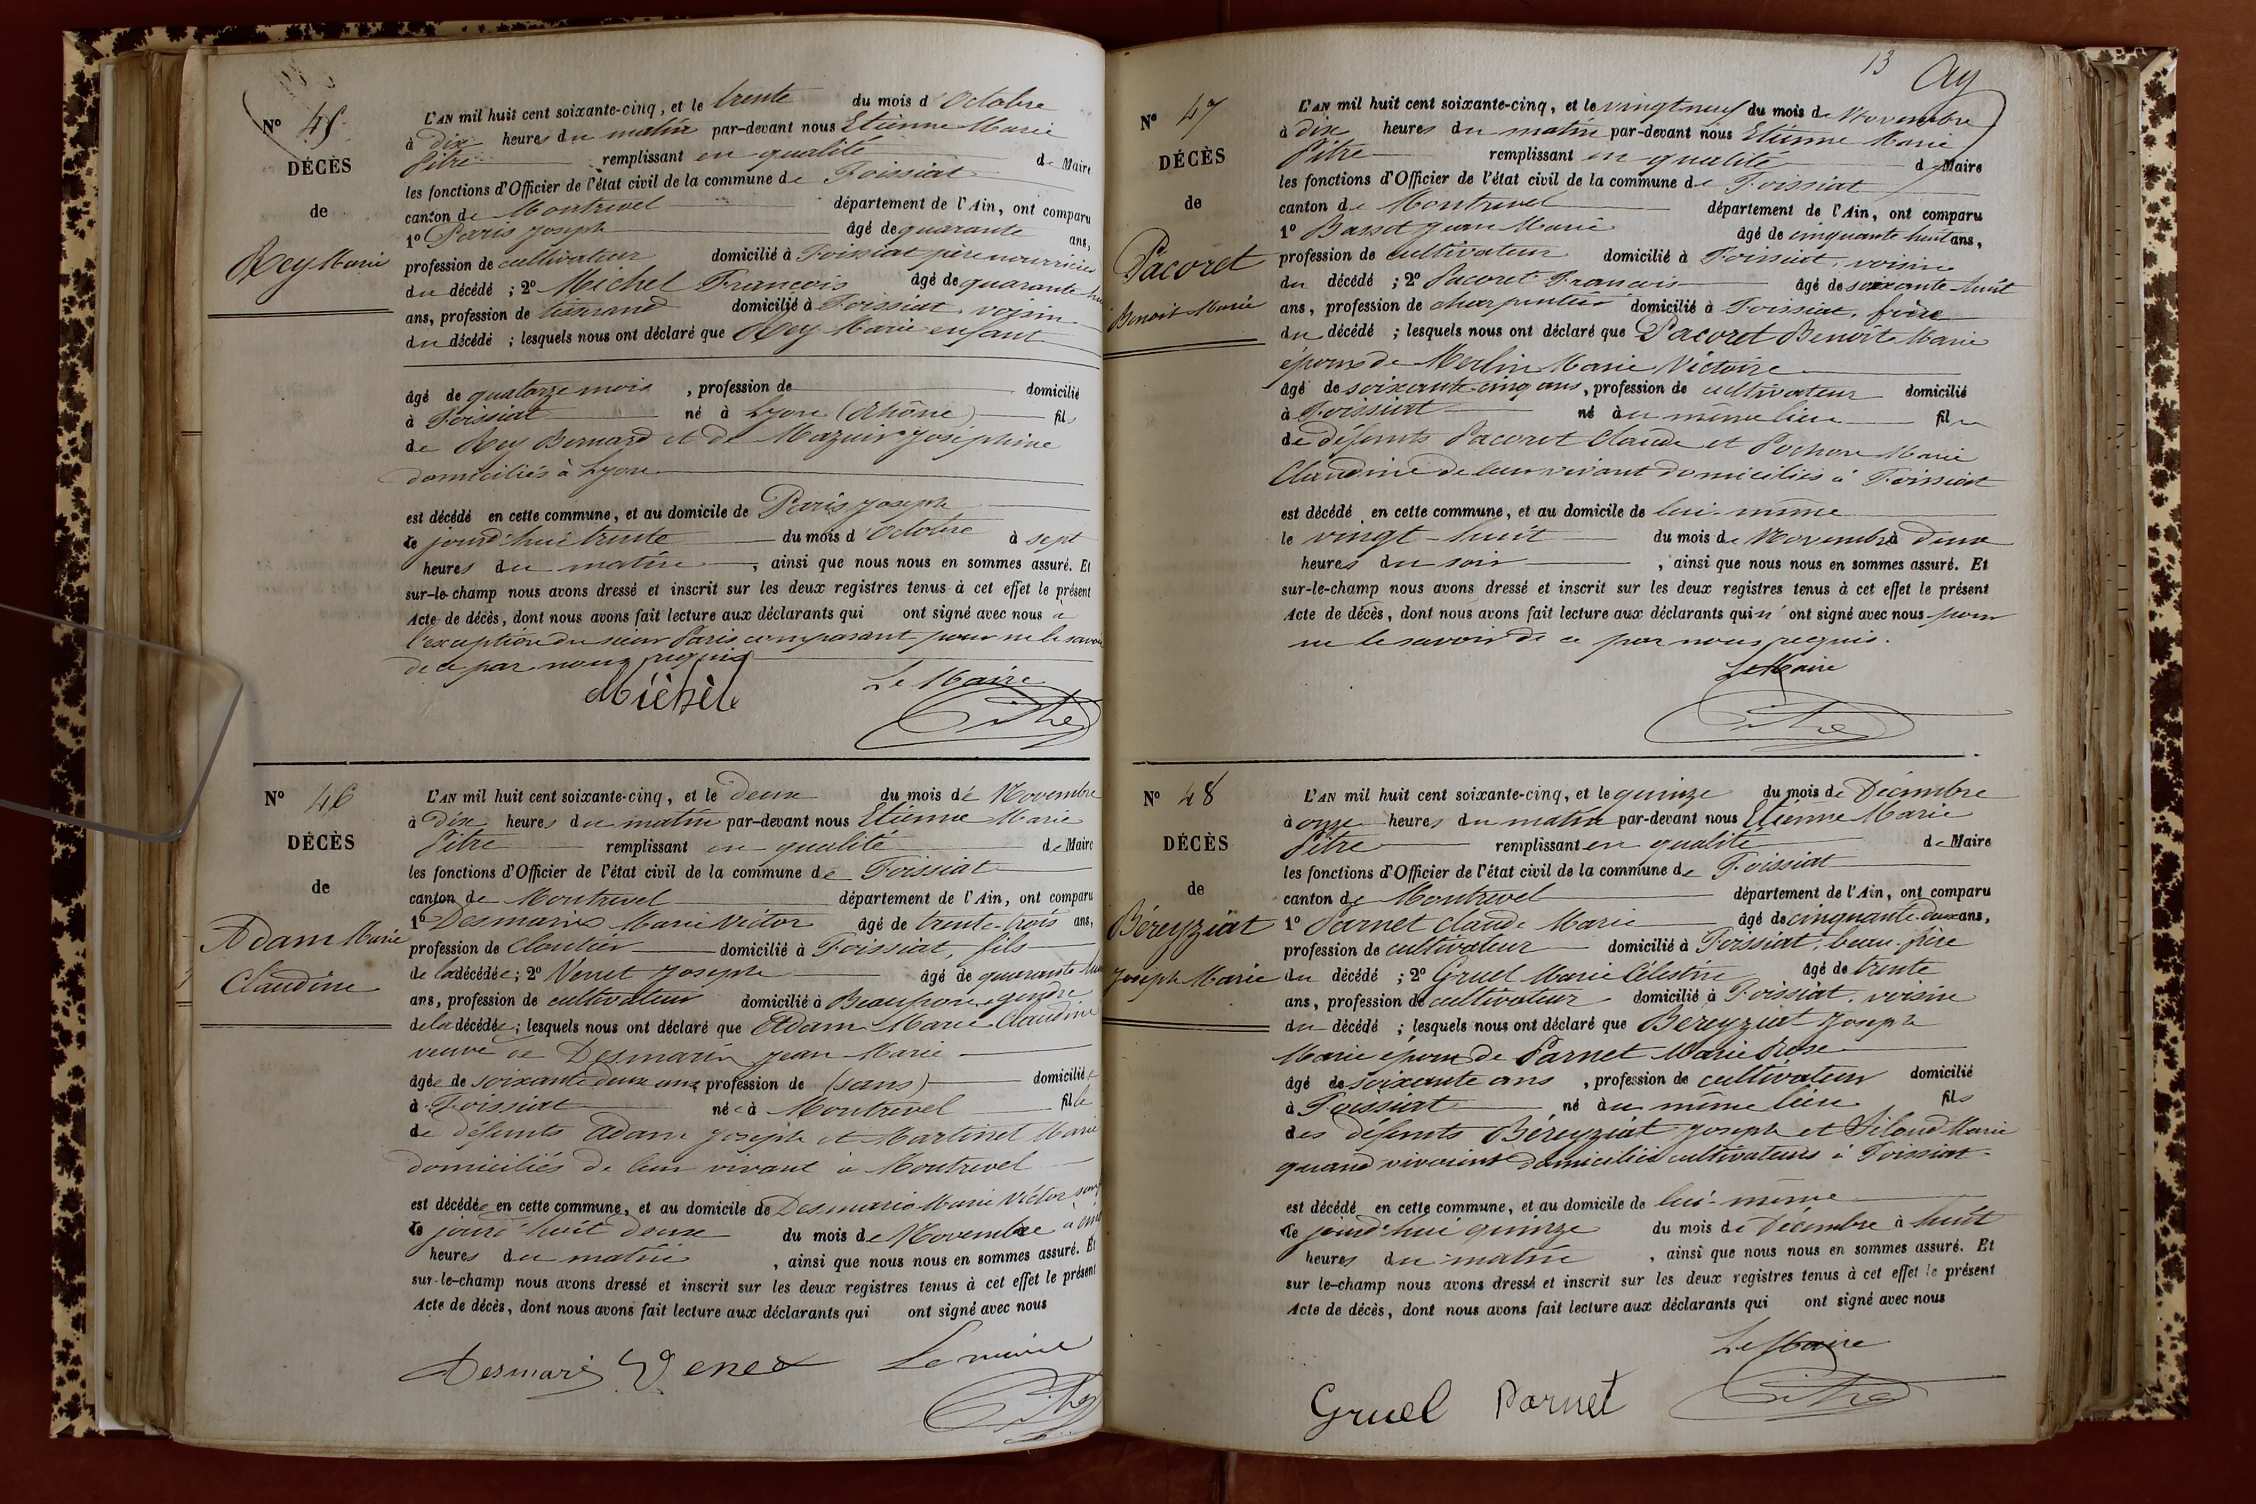 N° 45
DÉCÈS
de
Rey Marie
L'AN mil huit cent soixante-cinq, et le trente du mois d'Octobre
à dix heures du matin par-devant nous Etienne Marie
Pitre remplissant en qualité de Maire
les fonctions d'Officier de l'état civil de la commune de Foissiat
canton de Montrevel département de l'Ain, ont comparu
1° Paris Joseph âgé de quarante ans,
profession de cultivateur domicilié à Foissiat père nourricier
du décédé ; 2° Michel François âgé de quarante huit
ans, profession de tisserand domicilié à Foissiat, voisin
du décédé ; lesquels nous ont déclaré que Rey Marie enfant
âgé de quatorze mois , profession de domicilié
à Foissiat né à Lyon (Rhône) fils
de Rey Bernard et de Mazuir Joséphine
domiciliés à Lyon
est décédé en cette commune, et au domicile de Paris Joseph
le jourd'hui trente du mois d'Octobre à sept
heures du matin , ainsi que nous nous en sommes assuré. Et
sur-le-champ nous avons dressé et inscrit sur les deux registres tenus à cet effet le présent
Acte de décès, dont nous avons fait lecture aux déclarants qui ont signé avec nous à
l'exception du sieur Paris comparant pour ne le savoir
de ce par nous requis
Le Maire
Michel
Pitre
N° 46
DÉCÈS
de
Adam Marie
Claudine
L'AN mil huit cent soixante-cinq, et le deux du mois de Novembre
à dix heures du matin par-devant nous Etienne Marie
Pitre remplissant en qualité de Maire
les fonctions d'Officier de l'état civil de la commune de Foissiat
canton de Montrevel département de l'Ain, ont comparu
1° Desmaris Marie Victor âgé de trente-trois ans,
profession de cloutier domicilié à Foissiat, fils
de la décédée ; 2° Venet Joseph âgé de quarante
ans, profession de cultivateur domicilié à Beaupont, gendre
de la décédée ; lesquels nous ont déclaré que Adam Marie Claudine
veuve de Desmaris Jean Marie
âgée de soixante deux ans profession de (sans) domiciliée
à Foissiat née à Montrevel fille
de défunts Adam Joseph et Martinet Marie
domiciliés de leur vivant à Montrevel
est décédée en cette commune, et au domicile de Desmaris Marie Victor
le jourd'huit deux du mois de Novembre à
heures du matin , ainsi que nous nous en sommes assuré. Et
sur-le-champ nous avons dressé et inscrit sur les deux registres tenus à cet effet le présent
Acte de décès, dont nous avons fait lecture aux déclarants qui ont signé avec nous
Desmaris Venet Le maire
Pitre
13
N° 47
DÉCÈS
de
Pacoret
Benoit Marie
L'AN mil huit cent soixante-cinq, et le vingt neuf du mois de Novembre
à dix heures du matin par-devant nous Etienne Marie
Pitre remplissant en qualité de Maire
les fonctions d'Officier de l'état civil de la commune de Foissiat
canton de Montrevel département de l'Ain, ont comparu
1° Bassot Jean Marie âgé de cinquante huit ans,
profession de cultivateur domicilié à Foissiat, voisin
du décédé ; 2° Pacoret François âgé de soixante huit
ans, profession de charpentier domicilié à Foissiat, frère
du décédé ; lesquels nous ont déclaré que Pacoret Benoit Marie
époux de Merlin Marie Victoire
âgé de soixante-cinq ans, profession de cultivateur domicilié
à Foissiat né au même lieu fils
de défunts Pacoret Claude et Pochon Marie
Claudine de leur vivant domiciliés à Foissiat
est décédé en cette commune, et au domicile de lui-même
le vingt-huit du mois de Novembre à deux
heures du soir , ainsi que nous nous en sommes assuré. Et
sur-le-champ nous avons dressé et inscrit sur les deux registres tenus à cet effet le présent
Acte de décès, dont nous avons fait lecture aux déclarants qui n'ont signé avec nous pour
ne le savoir de ce par nous requis.
Le Maire
Pitre
N° 48
DÉCÈS
de
Béreyziat
Joseph Marie
L'AN mil huit cent soixante-cinq, et le quinze du mois de Décembre
à onze heures du matin par-devant nous Etienne Marie
Pitre remplissant en qualité de Maire
les fonctions d'Officier de l'état civil de la commune de Foissiat
canton de Montrevel département de l'Ain, ont comparu
1° Parnet Claude Marie âgé de cinquante deux ans,
profession de cultivateur domicilié à Foissiat, beau-frère
du décédé ; 2° Gruel Marie Célestin âgé de trente
ans, profession de cultivateur domicilié à Foissiat, voisin
du décédé ; lesquels nous ont déclaré que Béreyziat Joseph
Marie époux de Parnet Marie Rose
âgé de soixante ans , profession de cultivateur domicilié
à Foissiat né au même lieu fils
des défunts Béreyziat Joseph et Siland Marie
quand vivaient domiciliés cultivateurs à Foissiat
est décédé en cette commune, et au domicile de lui-même
le jourd'hui quinze du mois de Décembre à huit
heures du matin , ainsi que nous nous en sommes assuré. Et
sur le-champ nous avons dressé et inscrit sur les deux registres tenus à cet effet le présent
Acte de décès, dont nous avons fait lecture aux déclarants qui ont signé avec nous
Le Maire
Gruel Parnet Pitre